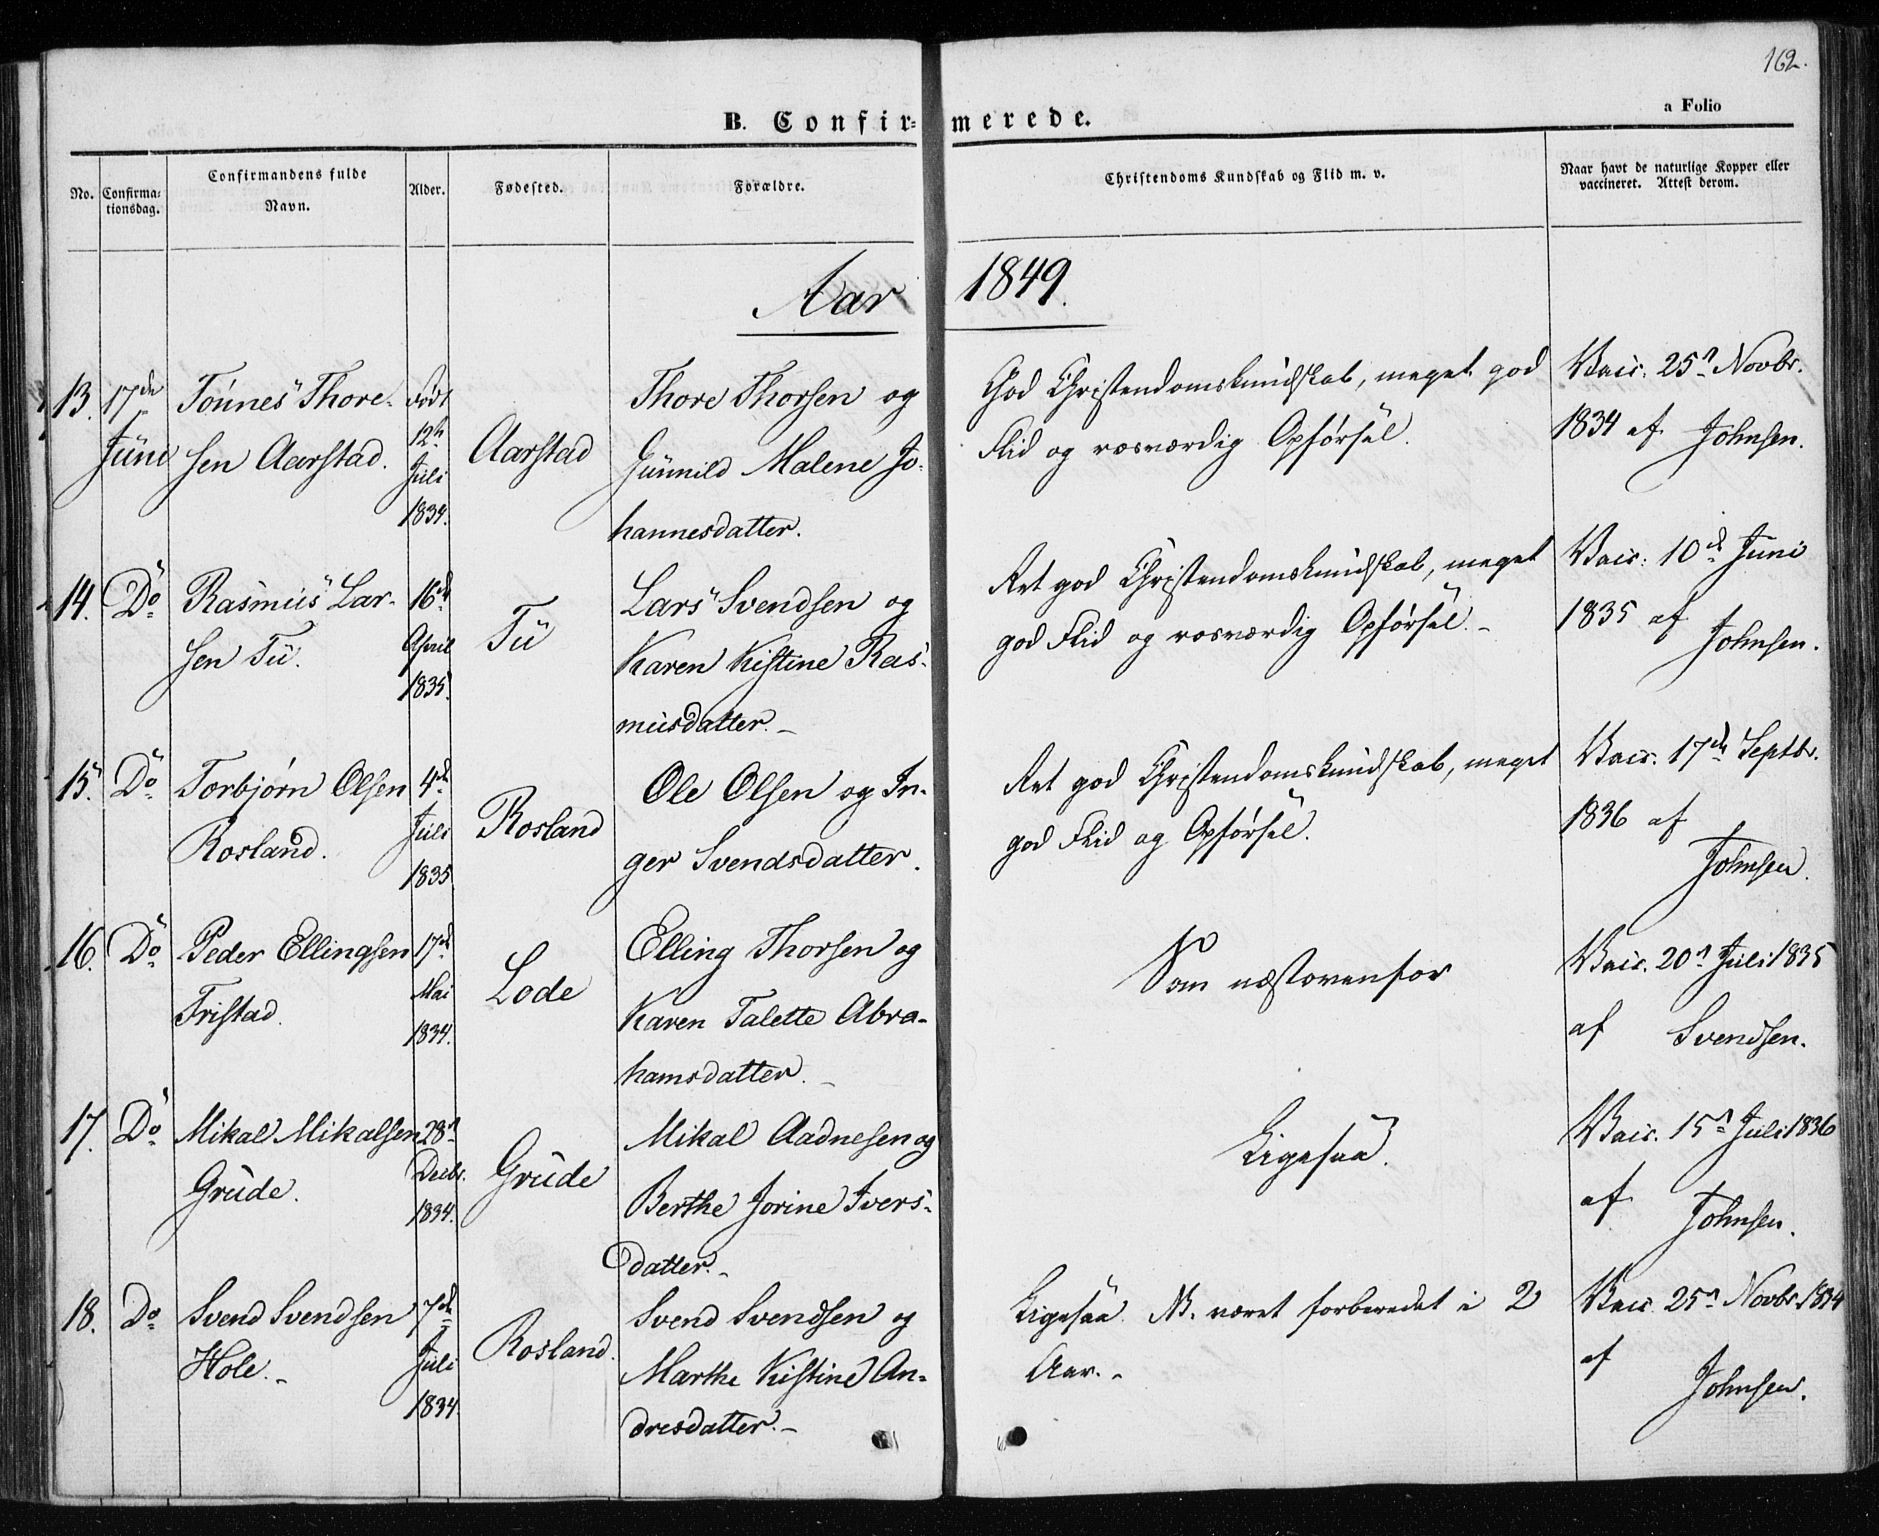 162.
a Folio
B. Confir=merede.
No.
Confirma=
tionsdag.
Confirmandens fulde
Navn.
Alder.
Fødested.
Forældre.
Christendoms Kundskab og Flid m. v.
Naar havt de naturlige Kopper eller
vaccineret. Attest derom.
Aar 1849.
13.
17de
Juni
Tönnes Thore-
sen Aarstad.
Født
12te
Juli
1834.
Aarstad
Thore Thorsen og
Gunnild Malene Jo-
hannesdatter.
God Christendomskundskab, meget god
Flid og rosværdig Opførsel.
Vacc. 25n Novbr.
1834 af Johnsen.
14.
Do
Rasmus Lar-
sen Tu.
16de
April
1835.
Tu
Lars Svendsen og
Karen Kistine Ras-
musdatter.-
Ret god Christendomskundskab, meget
god Flid og rosværdig Opførsel.-
Vacc. 10de Juni
1835 af
Johnsen.
15.
Do
Torbjørn Olsen
Rosland.
4de
Juli
1835
Rosland
Ole Olsen og In-
ger Svendsdatter.
Ret god Christendomskundskab, meget
god Flid og Opførsel.
Vacc. 17de Septbr.
1836 af
Johnsen.
16.
Do
Peder Ellingsen
Tristad.
17de
Mai
1834.
Lode
Elling Thorsen og
Karen Talette Abra-
hamsdatter.-
Som næstovenfor
Vacc. 20n Juli 1835
af Svendsen.
17.
Do
Mikal Mikalsen
Grude.
28n
Decbr.
1834.
Grude
Mikal Aadnesen og
Berthe Jorine Ivers-
datter.-
Ligesaa.
Vacc. 15n Juli 1836
af
Johnsen.
18.
Do
Svend Svendsen
Hole.-
7de
Juli
1834.
Rosland.
Svend Svendsen og
Marthe Kistine An-
dresdatter.-
Ligesaa. NB. været forberedet i 2
Aar.-
Vacc. 25n Novbr. 1834
af
Johnsen.